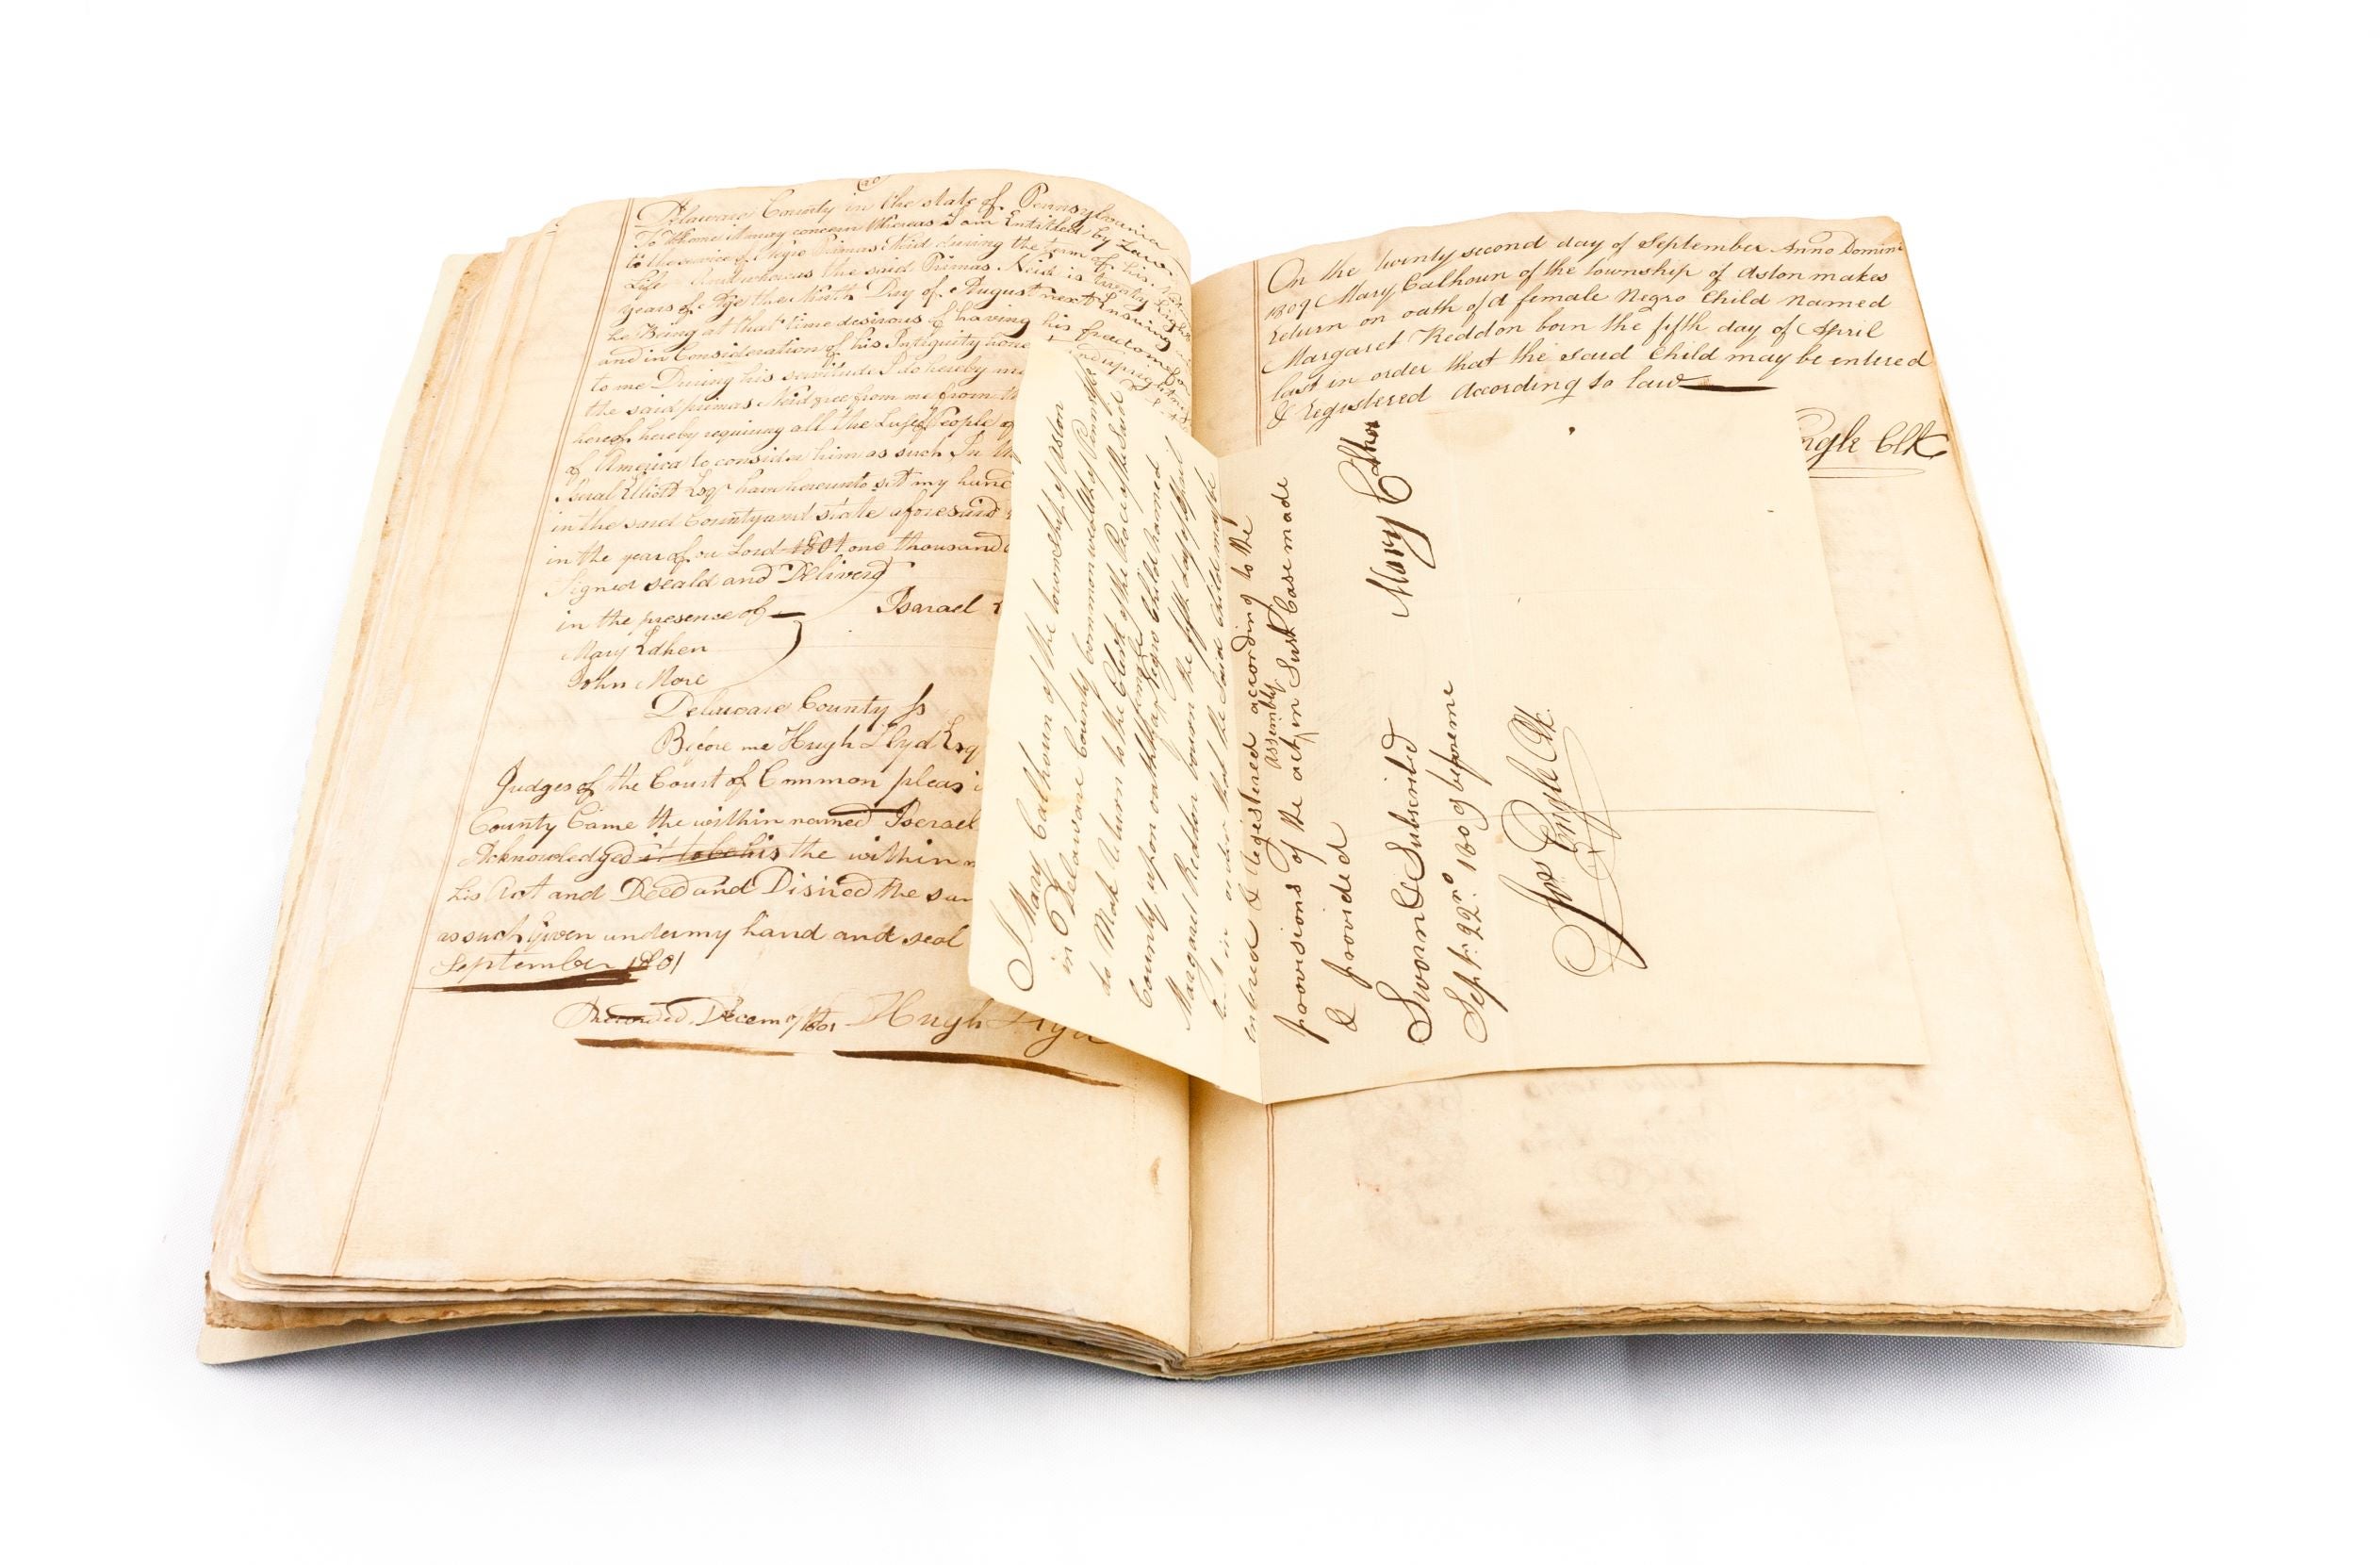 Delaware County in the state of Pennsylvania
To Whome it may concern Whereas I am Entitled by Law
to the service of Negro Primas Neid during the term of his
Life And whereas the said Primas Neid is twenty Eight
years of Age the Ninth Day of August next Ensuing
he Being at that time desirous of having his freedom for
and in Consideration of his Integuity
to me During his servitude I do hereby
the said primas Neid free from me from
hereof hereby requiring all the People of
of America to consider him as such In
Elliott Esqr have hereunto set my hand
in the said County and state aforesaid
in the year of our Lord 1801 one thousand
Signed seald and Deliverd
in the presence of
Israel
Mary Edhen
John More
Delaware County Ss
Before me Hugh Llyd Esq
Judges of the Court of Common pleas
County Came the within named Iserael
Acknowledged it to be his the within
his Act and Deed and Disired the
as such Given under my hand and seal
September 1801
Recorded Decem 1801 Hugh
I Mary Calhoun of the township of Aston
in Delaware County Commonwealth of
do Make return to the Clerk of the Peace of the said
County upon oath of a female Negro Child named
Margaret Reddon bourn the fifth day of April
last in order that the said Child may be
entered & registered according to the
provisions of the act assembly in Such Case made
& provided
Mary
Sworn & Subscribed
Sept: 22nd 1809 before me
Jos Engle Clk.
On the twenty second day of September Anno Domini
1809 Mary Calhoun of the township of Aston makes
return on oath of a female Negro Child Named
Margaret Reddon born the fifth day of April
last in order that the said Child may be entered
& registered According to law
ngle Clk